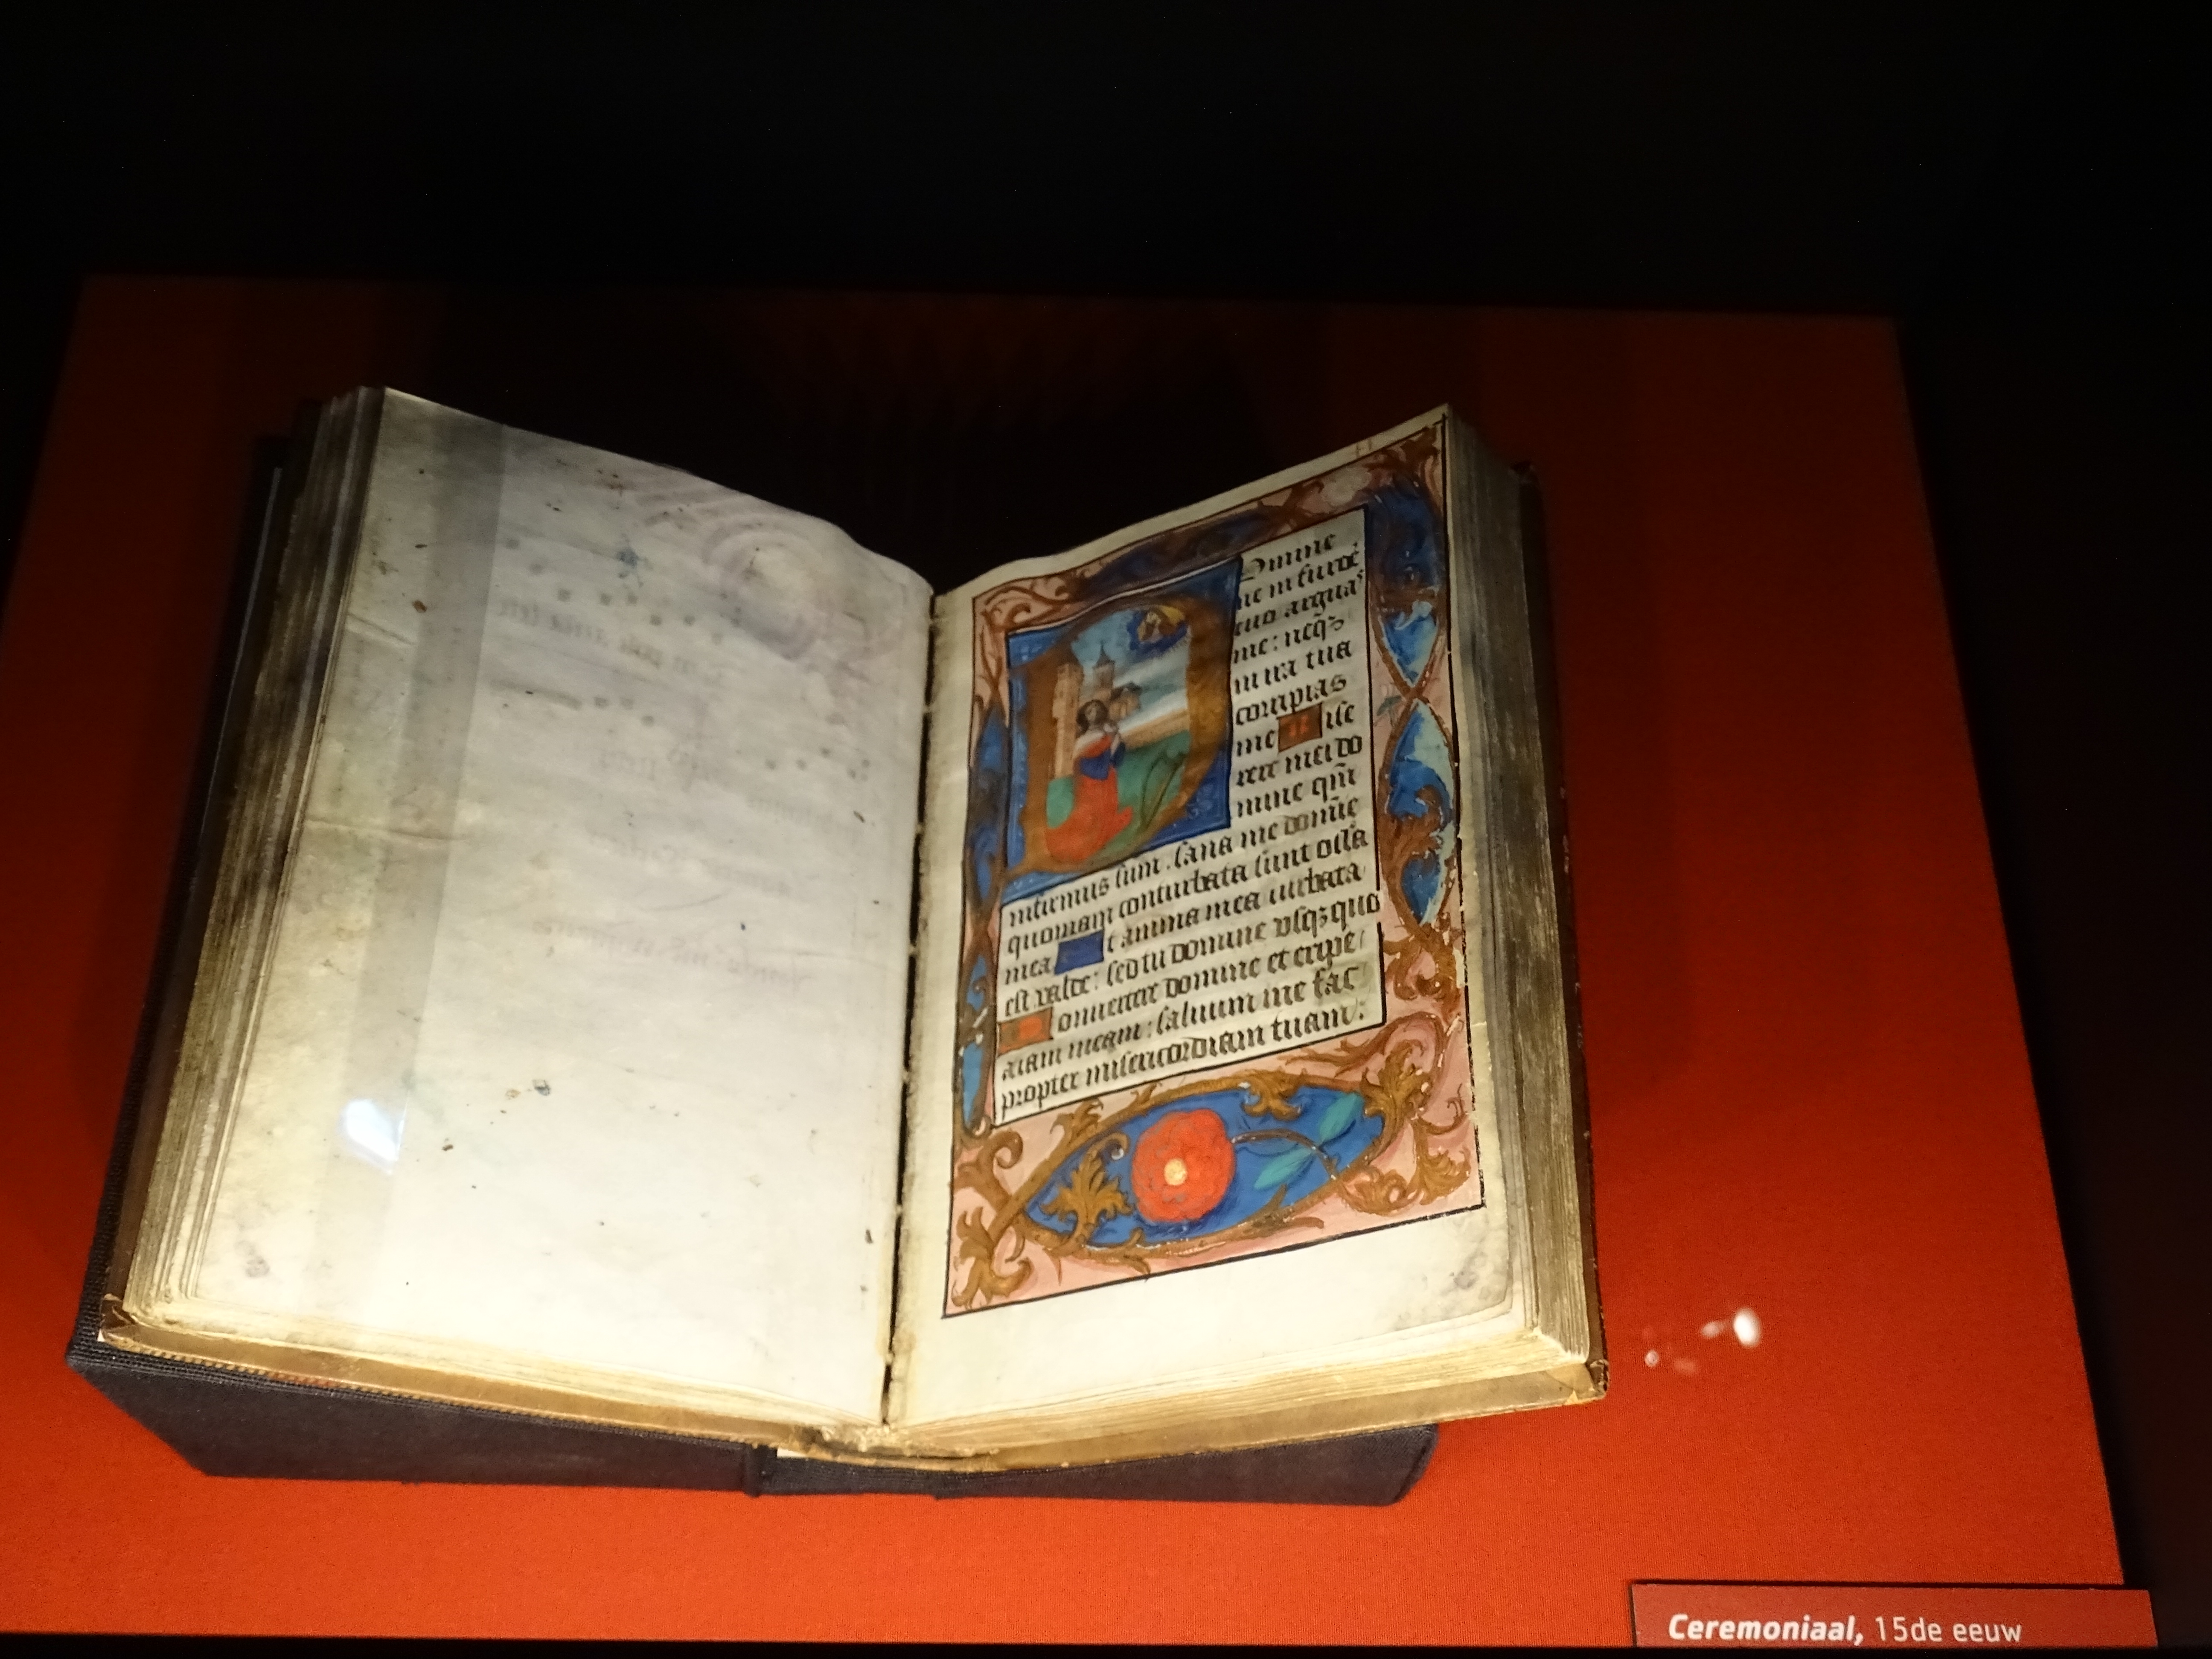 Domine
ne in furore
tuo arguas
me: neqꝫ
in ira tua
corripias
me Mise
rere mei do
mine qm̄
infirmus sum. sana me domīe
quoniam conturbata sunt ossa
mea Et anima mea turbata
est valde: sed tu domine usqꝫquo
Convertere domine et eripe
aīam meam: salvum me fac
propter misericordiam tuam:
Ceremoniaal, 15de eeuw